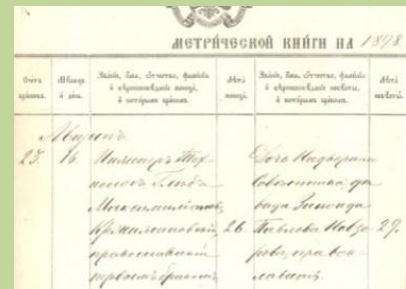 МЕТРИЧЕСКОЙ КНИГИ НА 1898
Счетъ браковъ.
Званіе, имя, отчество, фамилія
и вѣроисповѣданіе
и которымъ бракомъ.
Лѣта
Званіе, имя, отчество, фамилія
и вѣроисповѣданіе невѣсты,
и которымъ бракомъ.
Лѣта невѣсты.
23. 16. Инженеръ Тех-
нологъ Глѣбъ
Максимиліановъ
26.
православный
первымъ бракомъ
Дочь Надворнаго
Совѣтника дѣ-
вица Зинаида
Павлова Невзо- 29.
рова, право-
славная.